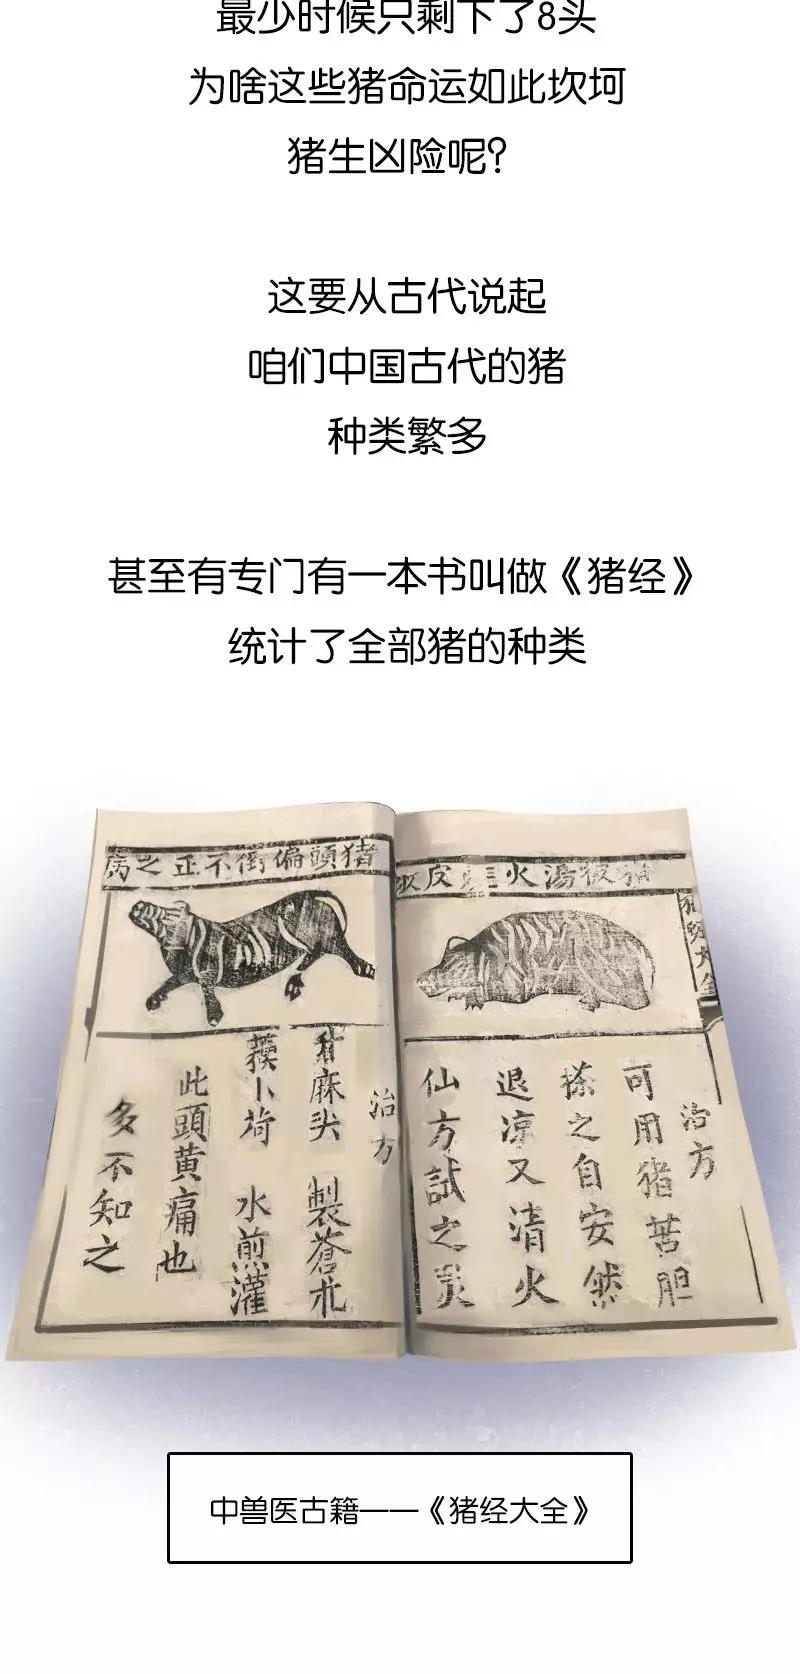 最少时候只剩下了8头
为啥这些猪命运如此坎坷
猪生凶险呢？
这要从古代说起
咱们中国古代的猪
种类繁多
甚至有专门有一本书叫做《猪经》
统计了全部猪的种类
猪被湯火
皮
猪经大全
治方
可用猪苦胆
搽之自安然
退凉又清火
仙方試之灵
猪頭偏倒不正之病
治方
麻头 製蒼朮
卜荷 水煎灌
此頭黄痛也
多不知之
中兽医古籍——《猪经大全》